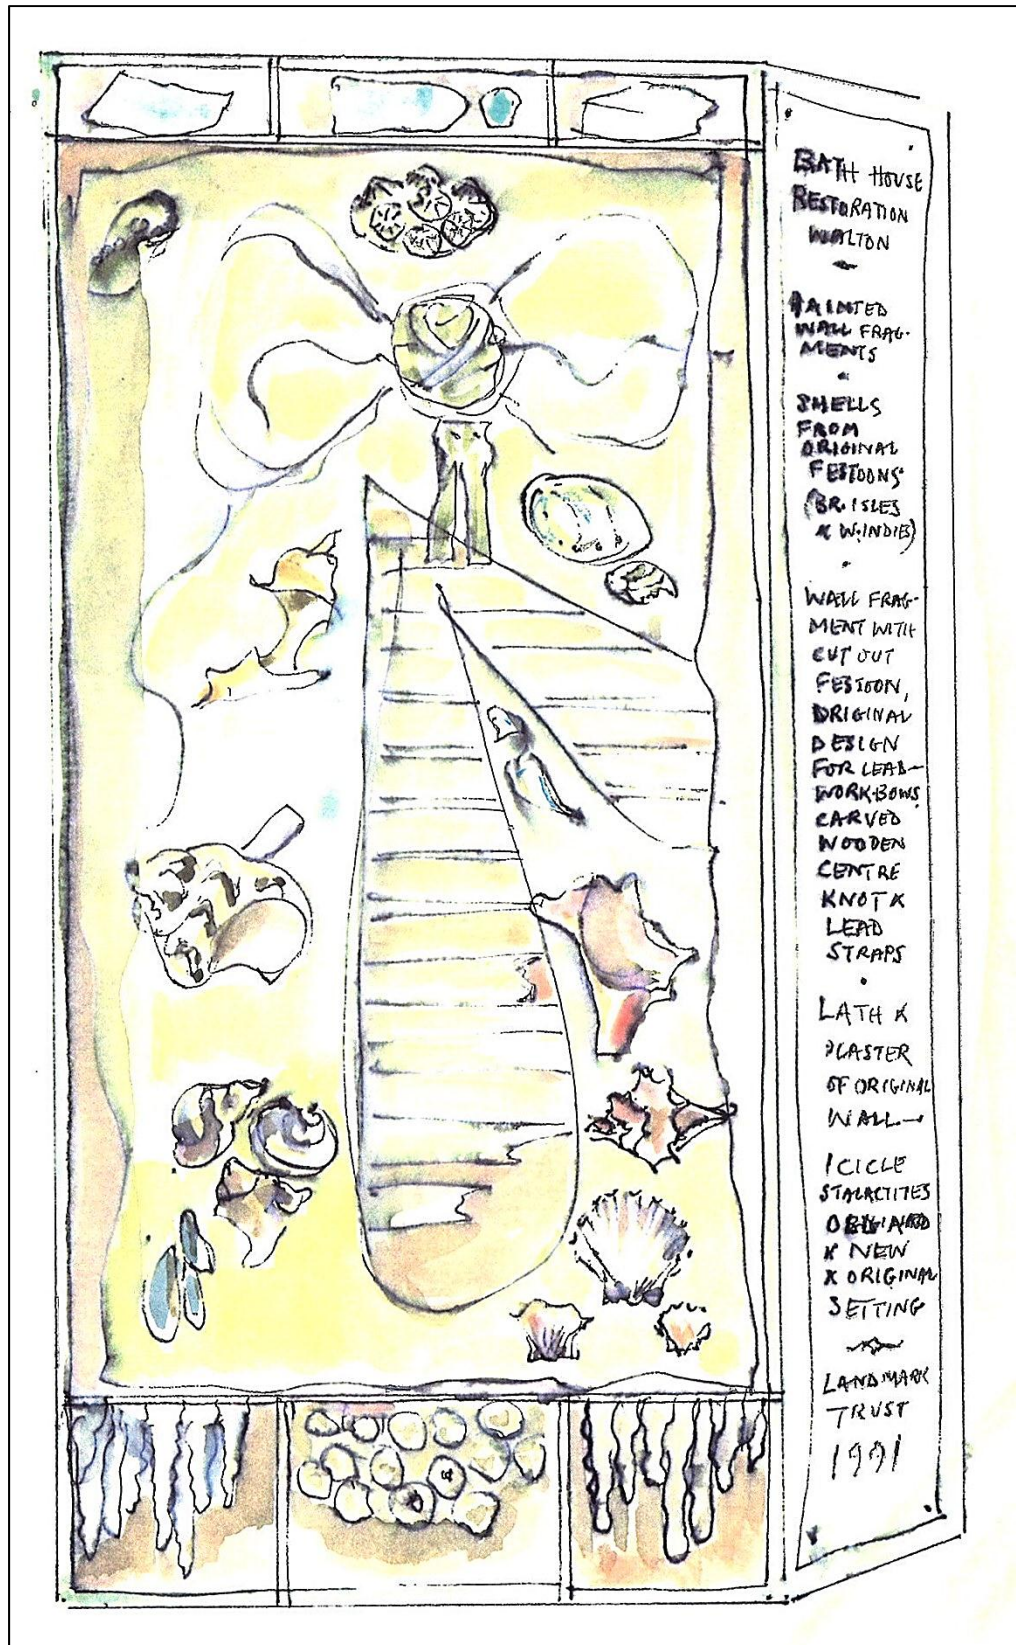 BATH HOUSE
RESTORATION
WALTON
PAINTED
WALL FRAG-
MENTS
SHELLS
FROM
ORIGINAL
FESTOONS
(BR. ISLES
& W. INDIES)
WALL FRAG-
MENT WITH
CUT OUT
FESTOON,
ORIGINAL
DESIGN
FOR LEAD-
WORK BOWS
CARVED
WOODEN
CENTRE
KNOT &
LEAD
STRAPS
LATH &
PLASTER
OF ORIGINAL
WALL—
ICICLE
STALACTITES
& NEW
& ORIGINAL
SETTING
LANDMARK
TRUST
1991